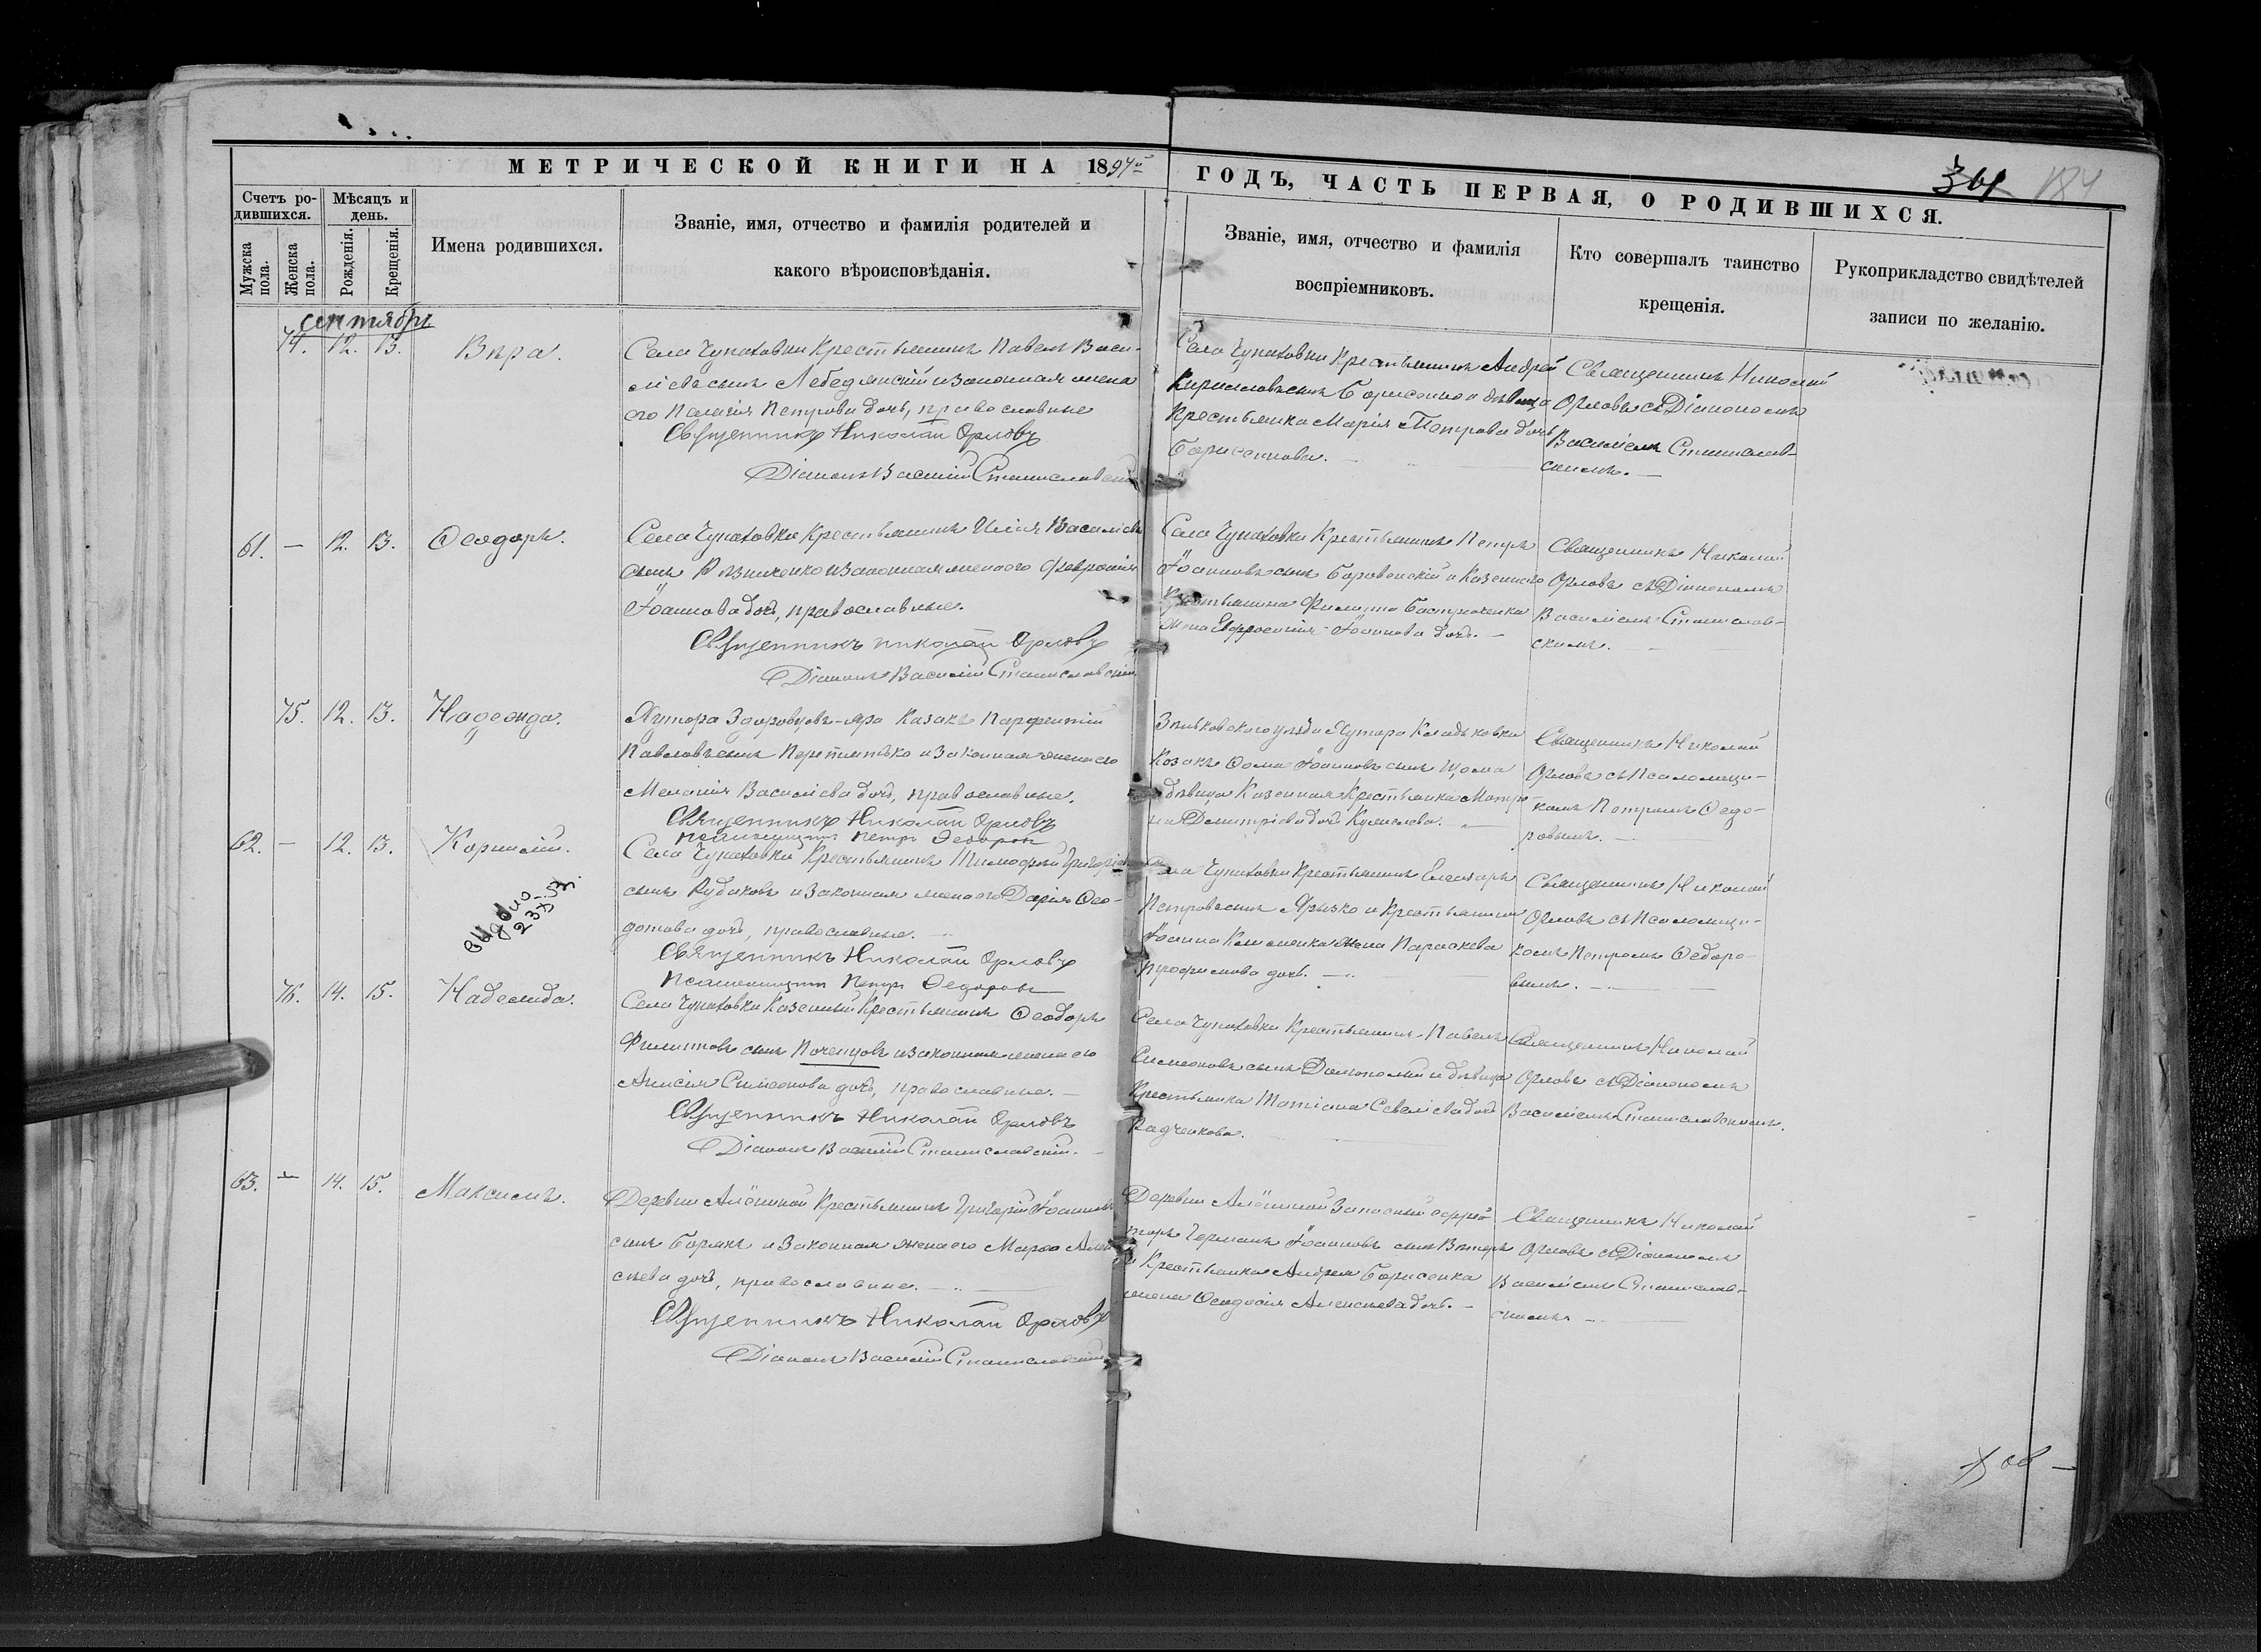 МЕТРИЧЕСКОЙ КНИГИ НА 1894й
ГОДЪ, ЧАСТЬ ПЕРВАЯ, О РОДИВШИХСЯ.
184
Счетъ родившихся.
Мужска пола.
Женска пола.
Мѣсяцъ и день.
Рожденія.
Крещенія.
Имена родившихся.
Званіе, имя, отчество и фамилія родителей и
какого вѣроисповѣданія.
Званіе, имя, отчество и фамилія
воспріемниковъ.
Кто совершалъ таинство
крещенія.
Рукоприкладство свидѣтелей
записи по желанію.
сентябрь
74. 12. 13. Вѣра.
Села Чупаховки Крестьянинъ Павелъ Васи-
ліевъ сынъ Лебедянскій и законная жена
его Пелагія Петрова дочь, православные
Священникъ Николай Орловъ
Діаконъ Василій Станиславскій
Села Чупаховки Крестьянинъ Андрей
Кирилловъ сынъ Борисенко и дѣвица
Крестьянка Марія Петрова дочь
Борисенкова.
Священникъ Николай
Орловъ съ Діакономъ
Василіемъ Станислав-
скимъ.
61. — 12. 13. Ѳеодоръ.
Села Чупаховки Крестьянинъ Илія Василіевъ
сынъ и законная жена его Февронія
Іоаннова дочь, православные.
Священникъ Николай Орловъ
Діаконъ Василій Станиславскій
Села Чупаховки Крестьянинъ Петръ
Іоанновъ сынъ Боровенскій и Казеннаго
Крестьянина Филиппа
жена Евфросинія Іоаннова дочь.
Священникъ Николай
Орловъ съ Діакономъ
Василіемъ Станислав-
скимъ.
75. 12. 13. Надежда.
Хутора Казакъ Парфентій
Павловъ сынъ Перетятько и законная жена его
Меланія Василіева дочь, православные.
Священникъ Николай Орловъ
Псаломщикъ Петръ Ѳедоровъ
Зѣньковского уѣзда Хутора
Козакъ Ѳома Іоанновъ сынъ
дѣвица Казенная Крестьянка Матро-
на Димитріева дочь
Священникъ Николай
Орловъ съ Псаломщи-
комъ Петромъ Ѳедо-
ровымъ.
62. — 12. 13. Корнилій.
Видано
23
Села Чупаховки Крестьянинъ Тимофей Григоріевъ
сынъ Рудаковъ и законная жена его Дарія Ѳео-
дотова дочь, православные.
Священникъ Николай Орловъ
Псаломщикъ Петръ Ѳедоровъ
Села Чупаховки Крестьянинъ Елеазаръ
Петровъ сынъ и Крестьянина
Іоанна Клименка жена Параскева
Трофимова дочь.
Священникъ Николай
Орловъ съ Псаломщи-
комъ Петромъ Ѳедоро-
вымъ.
76. 14. 15. Надежда.
Села Чупаховки Казенный Крестьянинъ Ѳеодоръ
Филипповъ сынъ Почепцовъ и законная жена его
Анисія Симеонова дочь, православные.
Священникъ Николай Орловъ
Діаконъ Василій Станиславскій.
Села Чупаховки Крестьянинъ Павелъ
Симеоновъ сынъ и дѣвица
Крестьянка Татіана дочь
Радченкова.
Священникъ Николай
Орловъ съ Діакономъ
Василіемъ Станиславскимъ.
63. — 14. 15. Максимъ.
Деревни Алёшиной Крестьянинъ Григорій Іоанновъ
сынъ Борякъ и законная жена его Марѳа Алек-
сѣева дочь, православные.
Священникъ Николай Орловъ
Діаконъ Василій Станиславскій
Деревни Алёшиной Запасный ефрей-
торъ Германъ Іоанновъ сынъ
и Крестьянина Андрея Борисенка
жена Ѳеодосія Алексѣева дочь.
Священникъ Николай
Орловъ съ Діакономъ
Василіемъ Станислав-
скимъ